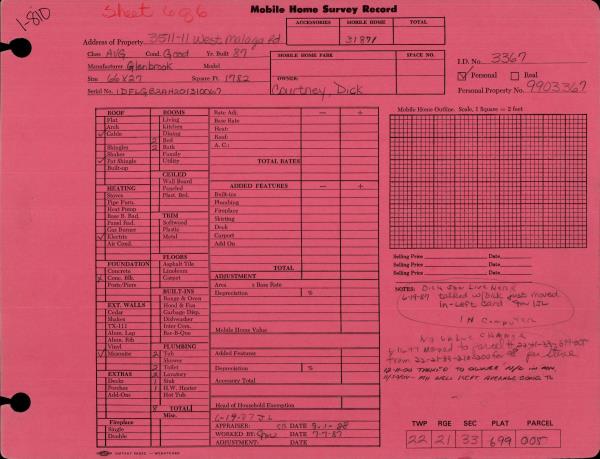 1-8D
Sheet 6 of 6
Mobile Home Survey Record
ACCESSORIES MOBILE HOME TOTAL
31871
Address of Property 3511-11 West Malaga Rd
Class AVG Cond. Good Yr. Built 87
Manufacturer Glenbrook Model
Size 66x27 Square Ft. 1782
Serial No. 1DFLGB2AH201310067
MOBILE HOME PARK SPACE NO.
OWNER:
Courtney, Dick
I.D. No. 3367
Personal Real
Personal Property No. 9903367
ROOF
Flat
Arch
Gable
Shingles
Shakes
Fat Shingle
Built-up
HEATING
Stoves
Pipe Furn.
Heat Pump
Base B. Rad.
Panel Rad.
Gas Burner
Electric
Air Cond.
FOUNDATION
Concrete
Conc. Blk.
Posts/Piers
EXT. WALLS
Cedar
Shakes
TX-111
Alum. Lap
Alum. Rib
Vinyl
Masonite
EXTRAS
Decks
Porches
Add-Ons
Fireplace
Single
Double
ROOMS
Living
Kitchen
Dining
2 Bed
2 Bath
Family
Utility
CEILED
Wall Board
Paneled
Plast. Brd.
TRIM
Softwood
Plastic
Metal
FLOORS
Asphalt Tile
Linoleum
Carpet
BUILT-INS
Range & Oven
Hood & Fan
Garbage Disp.
Dishwasher
Inter Com.
Bar-B-Que
PLUMBING
2 Tub
Shower
2 Toilet
2 Lavatory
1 Sink
1 H.W. Heater
Hot Tub
8 TOTAL
Misc.
Rate Adj. — +
Base Rate
Heat:
Roof:
A. C.:
TOTAL RATES
ADDED FEATURES — +
Built-ins
Plumbing
Fireplace
Skirting
Deck
Carport
Add On
TOTAL
ADJUSTMENT
Area x Base Rate
Depreciation %
Mobile Home Value
Added Features
Depreciation %
Accessory Total
Head of Household Exemption
APPRAISER: DATE 9-1-88
WORKED BY: DATE 7-7-87
ADJUSTMENT: DATE
Mobile Home Outline. Scale, 1 Square = 2 feet
Selling Price Date
Selling Price Date
Selling Price Date
NOTES: Dick
6-19-87 talked w/Dick just moved
in-Left card
IN Computer
No Value Change
TWP RGE SEC PLAT PARCEL
22 21 33 699 005